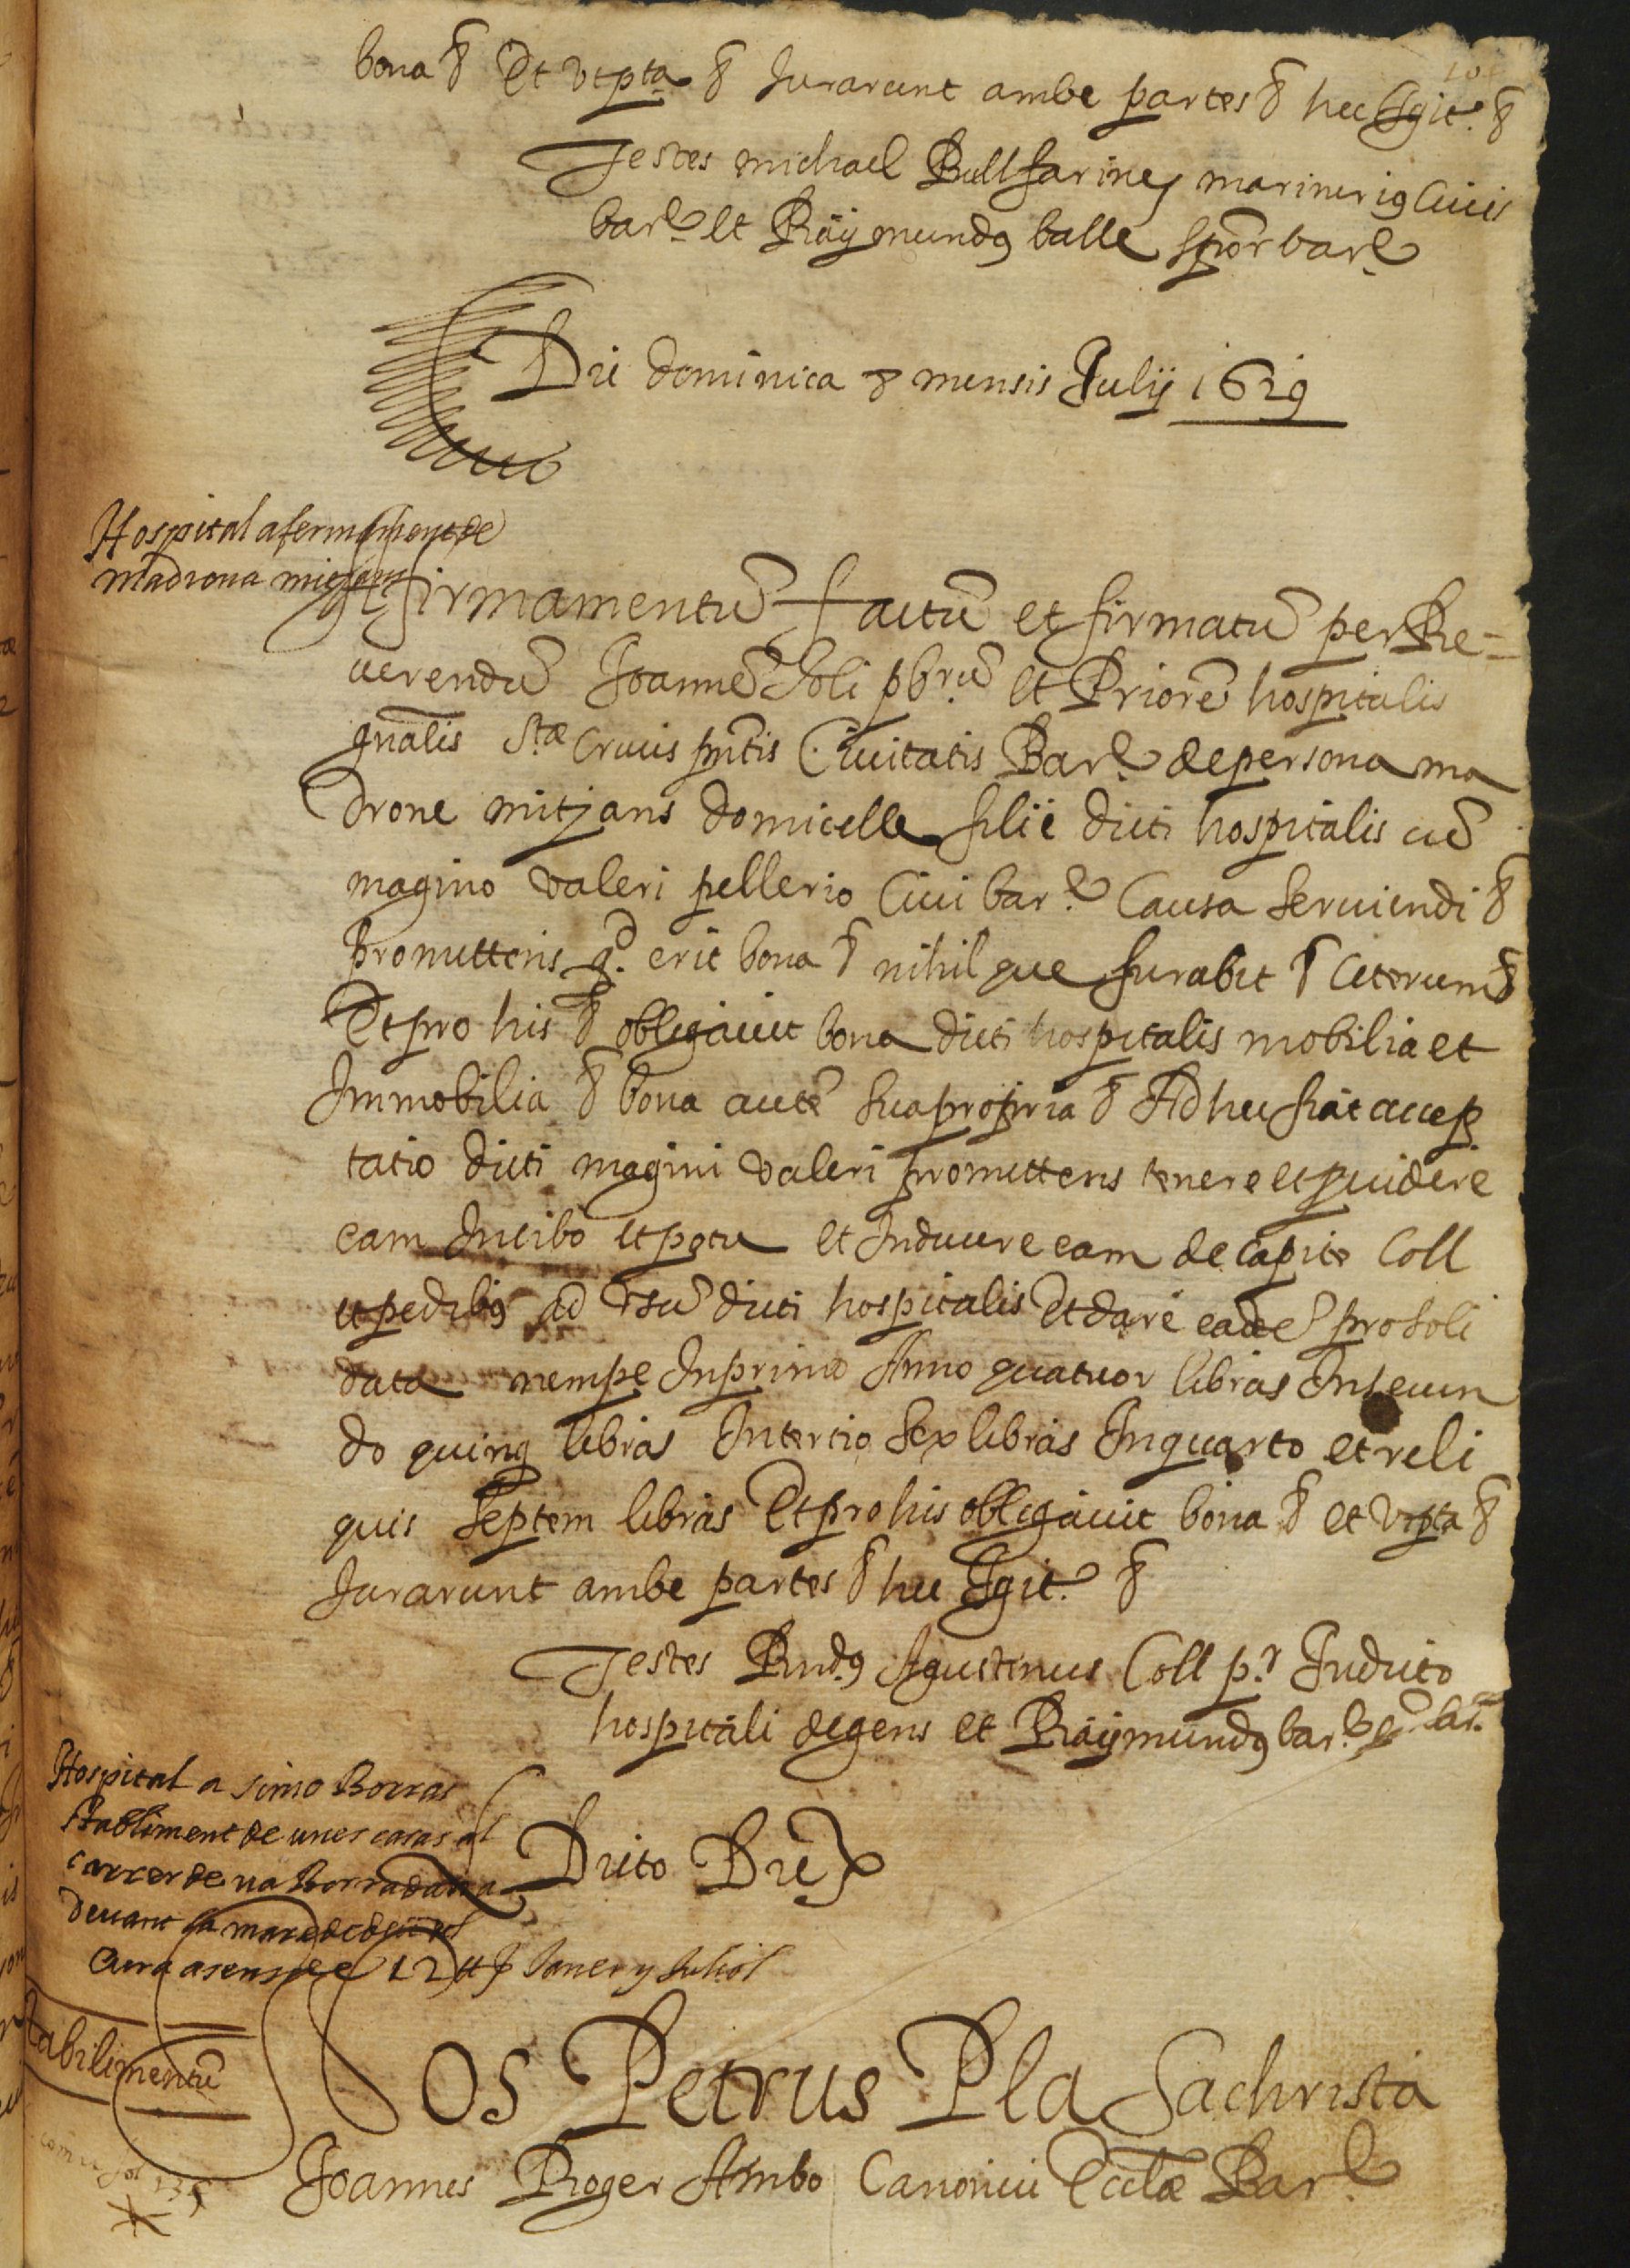 bona & Et vt pta & Jurarunt ambe partes & hec Igit.r &
Testes michael Bullfarines marineri9 Ciuis
bar.e et Raÿmund9 balle scptor bar.e
Die dominica 8 mensis Julij 1629
Hospital afermament de
madrona mitjans
Affirmamentũ factũ et firmatũ per Re=
uerendũ Joannẽ Soli pbr.ũ et Priorẽ hospitalis
gnãlis S.tæ Crucis pñtis Ciuitatis Bar.e de persona ma
drone mitjans domicelle filie dicti hospitalis cũ
magino valeri pellerio Ciui bar.e Causa seruiendi &
Promittens q.d erit bona & nihil que furabit & Ceterum &
Et pro his & obligauit bona dicti hospitalis mobilia et
Immobilia & bona autẽ sua propria & Ad hec fiat accep
tatio dicti magini valeri promittens tenere et puidere
eam In cibo et potu et Inducere eam de capite Coll
et pedib9 ad vsũ dicti hospitalis Et dare eadẽ pro soli
data nempe In primo Anno quatuor libras In secun
do quinq libras In tertio sex libras In quarto et reli
quis septem libras Et pro his obligauit bona & et vt pta &
Jurarunt ambe partes & hec Igit.r &
Testes Rnd9 Agustinus Coll p.r In dicto
hospitali degens et Raÿmund9 bar.e
Hospital a simo Borras
stabliment de unes casas al
carrer de na Borradana
deuant la mare de deu del
Cura a sens de 12 tt J Janer y Juliol
Dicto Die
Stabilimentũ
Nos Petrus Pla Sachrista
Joannes Roger Ambo Canonici Eccłæ Bar.e